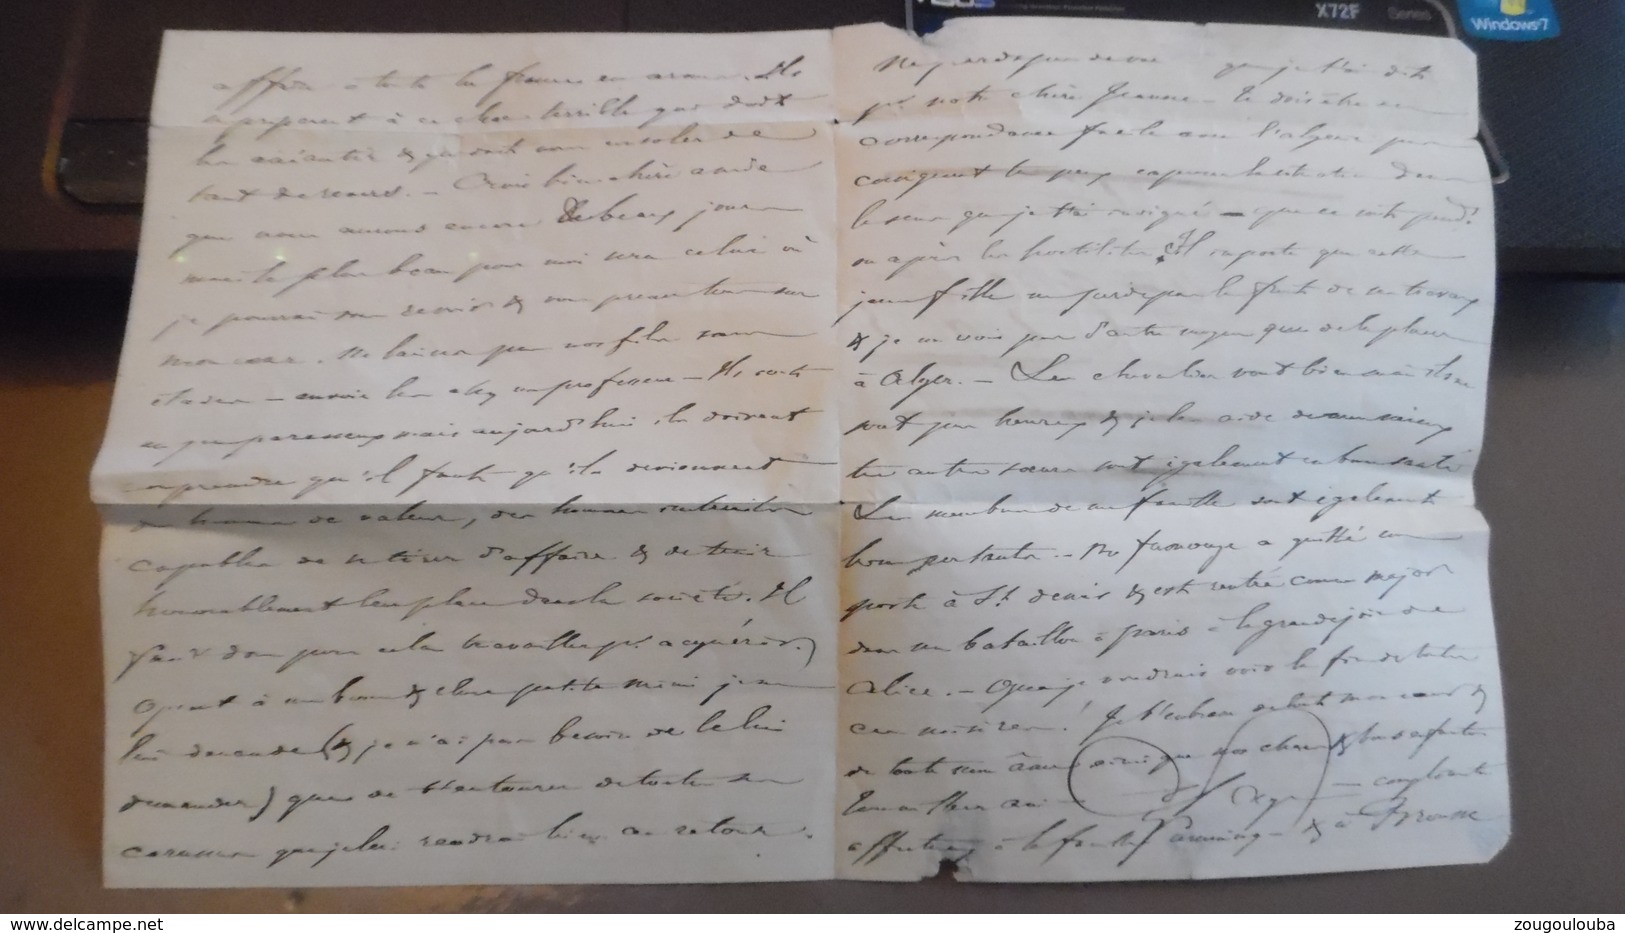 X72F Series
Windows 7
affre à toute la france en armes. Ils
se préparent à ce choc terrible qui doit
les anéantir & qui doit nous consoler de
tant de revers. - Crois bien chère amie
que nous aurons encore de beaux jours
mais le plus beau pour moi sera celui où
je pourrai vous revoir & vous presser tous sur
mon cœur. Ne laisse pas nos fils sans
étudier - envoie les chez un professeur - Ils sont
un peu paresseux mais aujourd'hui ils doivent
comprendre qu'il faut qu'ils deviennent
des hommes de valeur, des hommes
capables de se tirer d'affaire & de tenir
honorablement leur place dans la société. Il
faut donc pour cela travailler pr acquérir.
Quant à ma bonne & chère petite mimi je ne
lui demande (& je n'ai pas besoin de le lui
demander) que de t'entourer de toutes ses
caresses que je lui rendrai bien au retour.
Ne perds pas de vue ce que je t'ai dit
pr notre chère Jeanne - Tu dois être en
correspondance facile avec l'algérie par
conséquent tu peux exposer la situation dans
le sens que je t'ai indiqué - que ce soit pendt
ou après les hostilités. Il importe que cette
jeune fille ne perde pas le fruit de ses travaux
& je ne vois pas d'autre moyen que de la placer
à Alger. - Les chevalier vont bien mais ils ne
sont pas heureux & je les aide de mon mieux
tes autres sœurs sont également en bonne santé
Les membres de ma famille sont également
bien portants. - Mr a quitté son
poste à St denis & est rentré comme major
dans un bataillon à paris à la grande joie de
Alice. - Que je voudrais voir la fin de toutes
ces misères! Je t'embrasse de tout mon cœur &
de toute mon âme ainsi que nos chers & bons enfants
Ton meilleur ami
- compliments
affectueux à la famille & à Brousse
zougoulouba